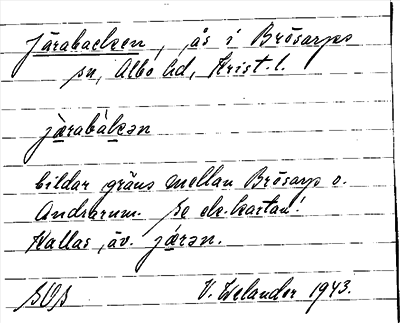 Järabacken, ås i Brösarps
sn, Albo hd, Krist. l.
jä̀rabàkən
bildar gräns mellan Brösarp o.
Andrarum. Se ek. kartan!
Kallas äv. jä́rən.
V. Welander 1943.